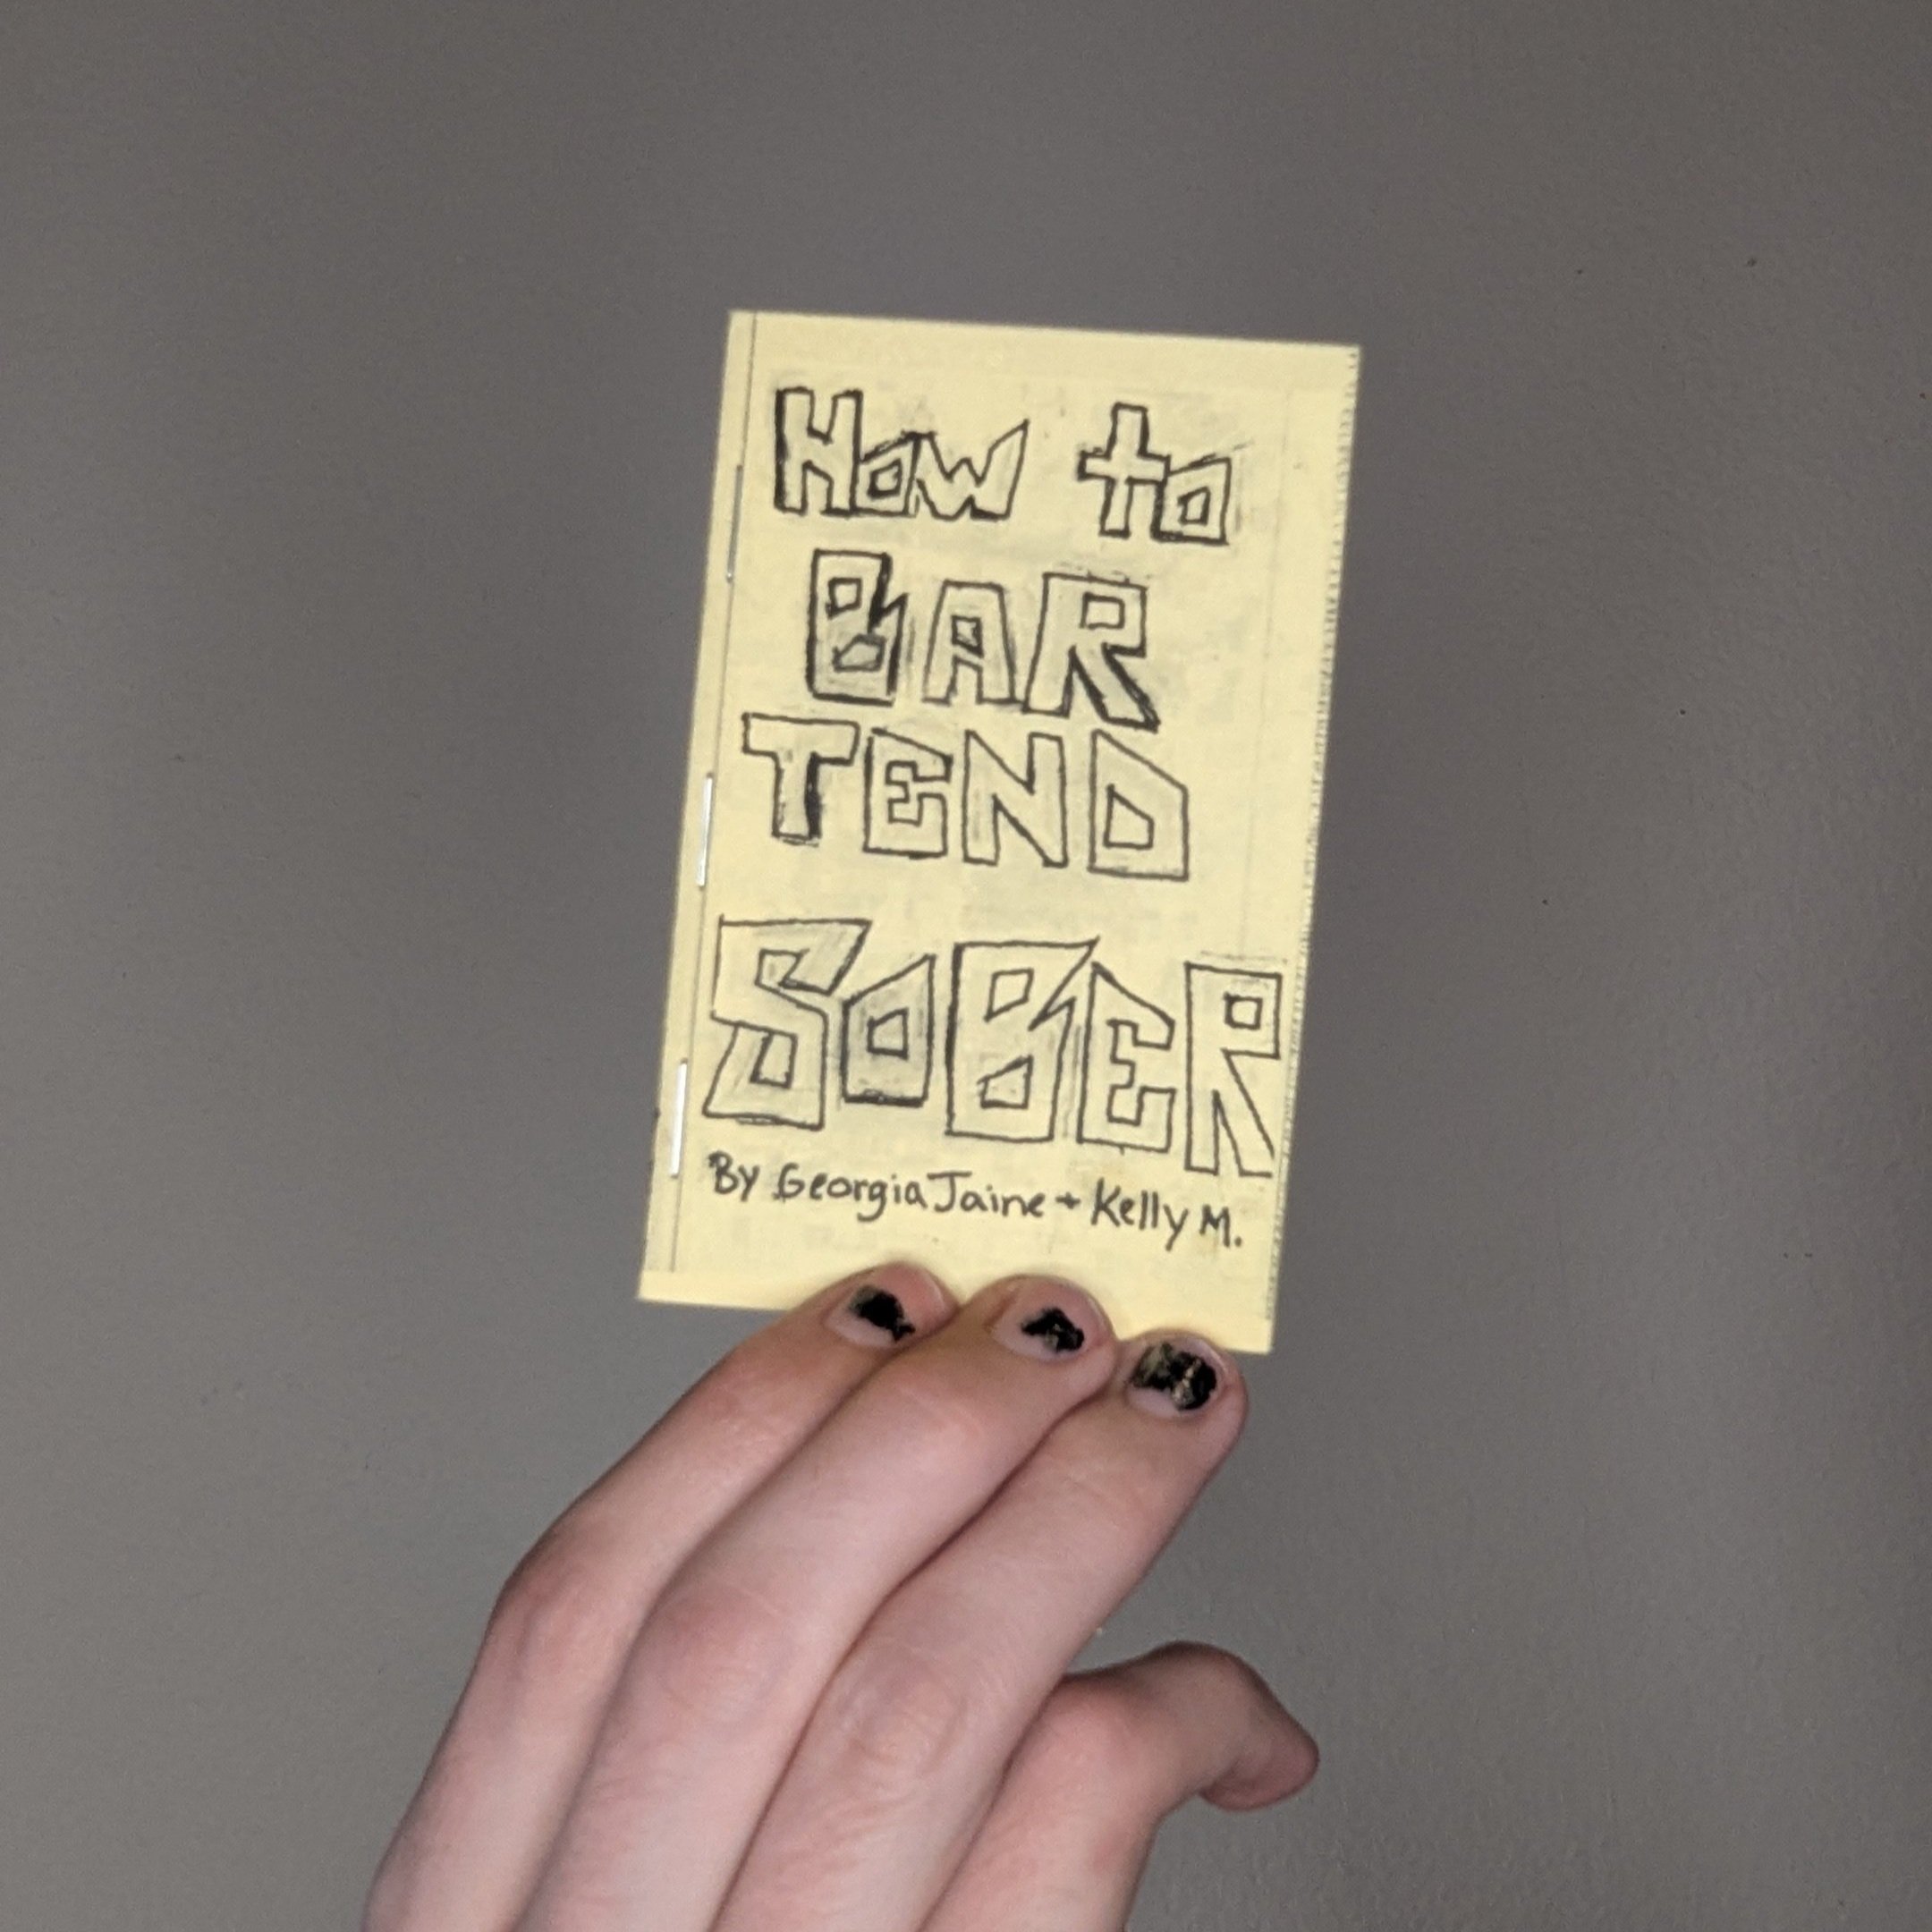 How to
BAR
TEND
SOBER
By Georgia Jaine + Kelly M.